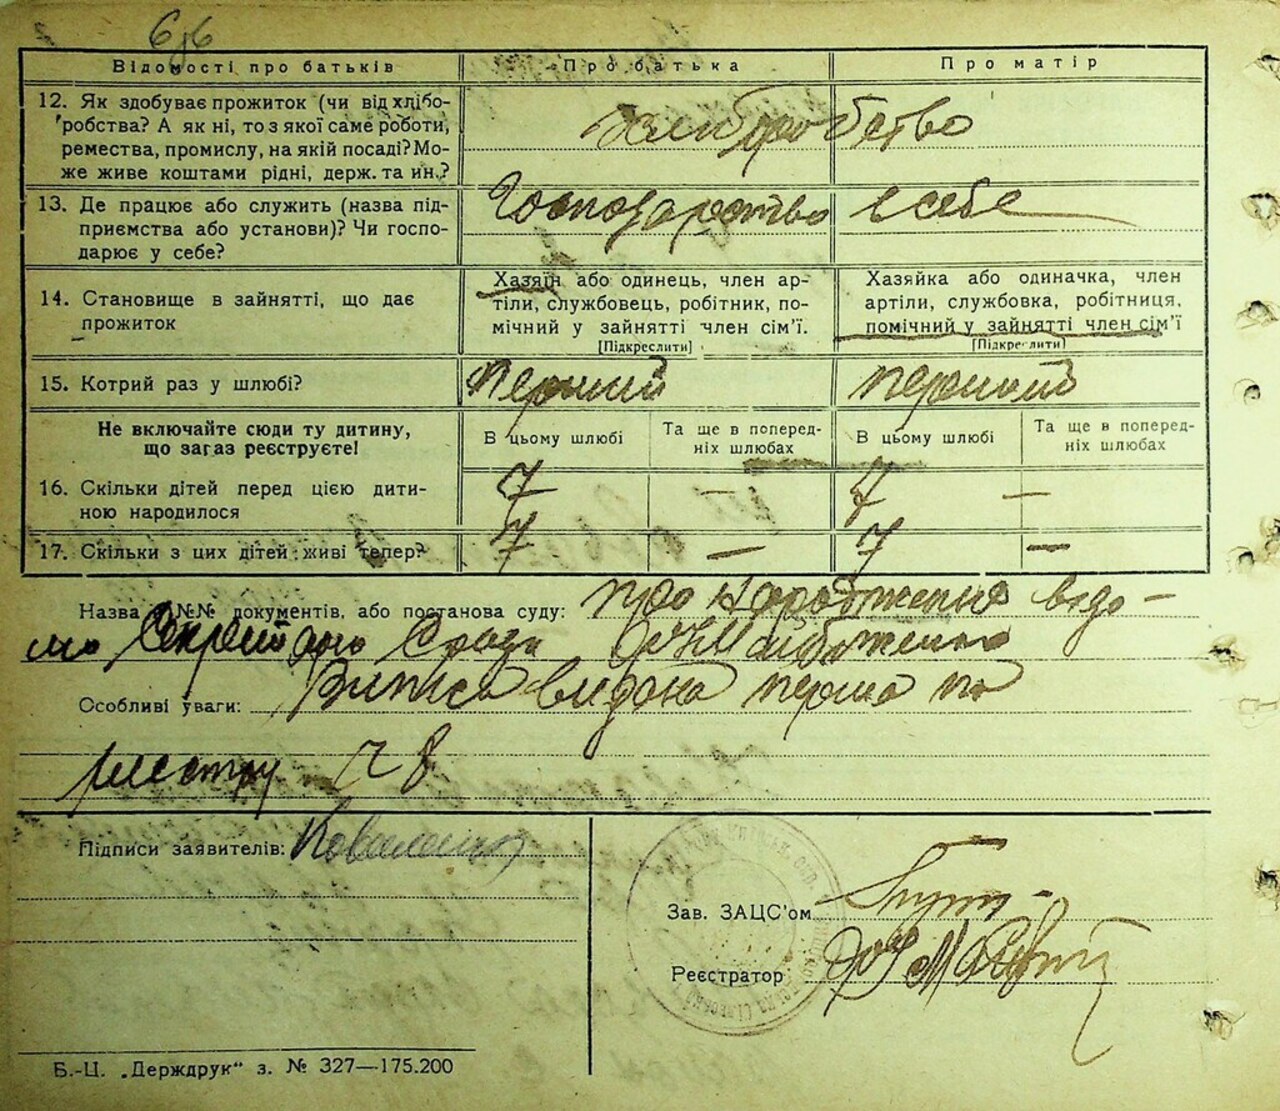 Відомості про батьків
Про батька
Про матір
12. Як здобуває прожиток (чи від хлібо-
робства? А як ні, то з якої саме роботи,
ремества, промислу, на якій посаді? Мо-
же живе коштами рідні, держ. та ин.?
хлиборобство
13. Де працює або служить (назва під-
приємства або установи)? Чи госпо-
дарює у себе?
Господарство в себе
14. Становище в зайнятті, що дає
прожиток
Хазяїн або одинець, член ар-
тіли, службовець, робітник, по-
мічний у зайнятті член сім'ї.
[Підкреслити]
Хазяйка або одиначка, член
артіли, службовка, робітниця,
помічний у зайнятті член сім'ї
[Підкреслити]
15. Котрий раз у шлюбі?
перший
перший
Не включайте сюди ту дитину,
що загаз реєструєте!
В цьому шлюбі
Та ще в поперед-
ніх шлюбах
В цьому шлюбі
Та ще в поперед-
ніх шлюбах
16. Скільки дітей перед цією дити-
ною народилося
7 — 7 —
17. Скільки з цих дітей живі тепер?
7 — 7 —
Назва і №№ документів, або постанова суду: про народження відо-
мо Секретарю Сради
Особливі уваги: Випись видана перша по
реестру 8
Підписи заявителів: Коваленко
Зав. ЗАЦС'ом
Реєстратор
Б.-Ц. „Держдрук" з. № 327—175.200